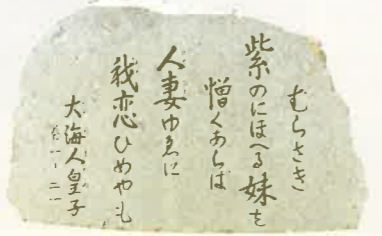 むらさき
紫のにほへる妹を
憎くあらば
人妻ゆゑに
我恋ひめやも
大海人皇子
巻一ー二一